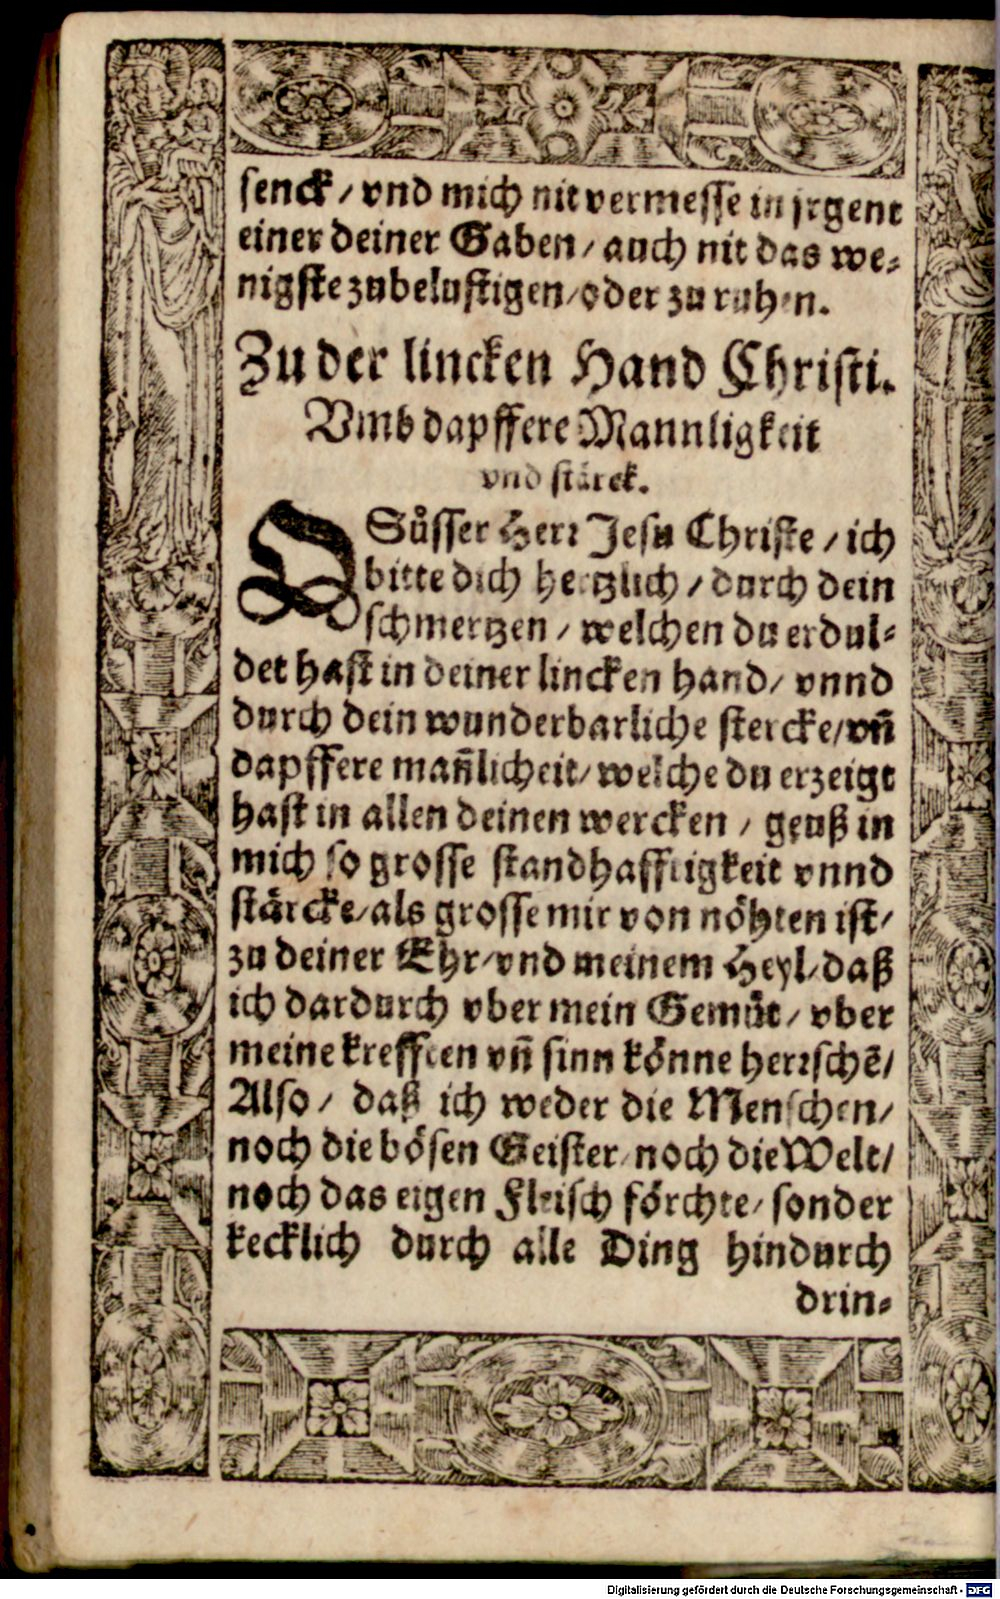 senck / vnd mich nit vermesse in jrgent
einer deiner Gaben / auch nit das we⸗
nigste zubelustigen / oder zu ruhen.
Zu der lincken Hand Christi.
Vmb dapffere Mannligkeit
vnd stärck.
O Süsser Herr Jesu Christe / ich
bitte dich hertzlich / durch dein
schmertzen / welchen du erdul⸗
det hast in deiner lincken hand / vnnd
durch dein wunderbarliche stercke / vñ
dapffere mañlicheit / welche du erzeigt
hast in allen deinen wercken / geuß in
mich so grosse standhafftigkeit vnnd
stärcke / als grosse mir von nöhten ist /
zu deiner Ehr / vnd meinem Heyl / daß
ich dardurch vber mein Gemüt / vber
meine krefften vñ sinn könne herrschẽ /
Also / daß ich weder die Menschen /
noch die bösen Geister / noch die Welt /
noch das eigen Fleisch förchte / sonder
kecklich durch alle Ding hindurch
drin⸗
Digitalisierung gefördert durch die Deutsche Forschungsgemeinschaft - DFG